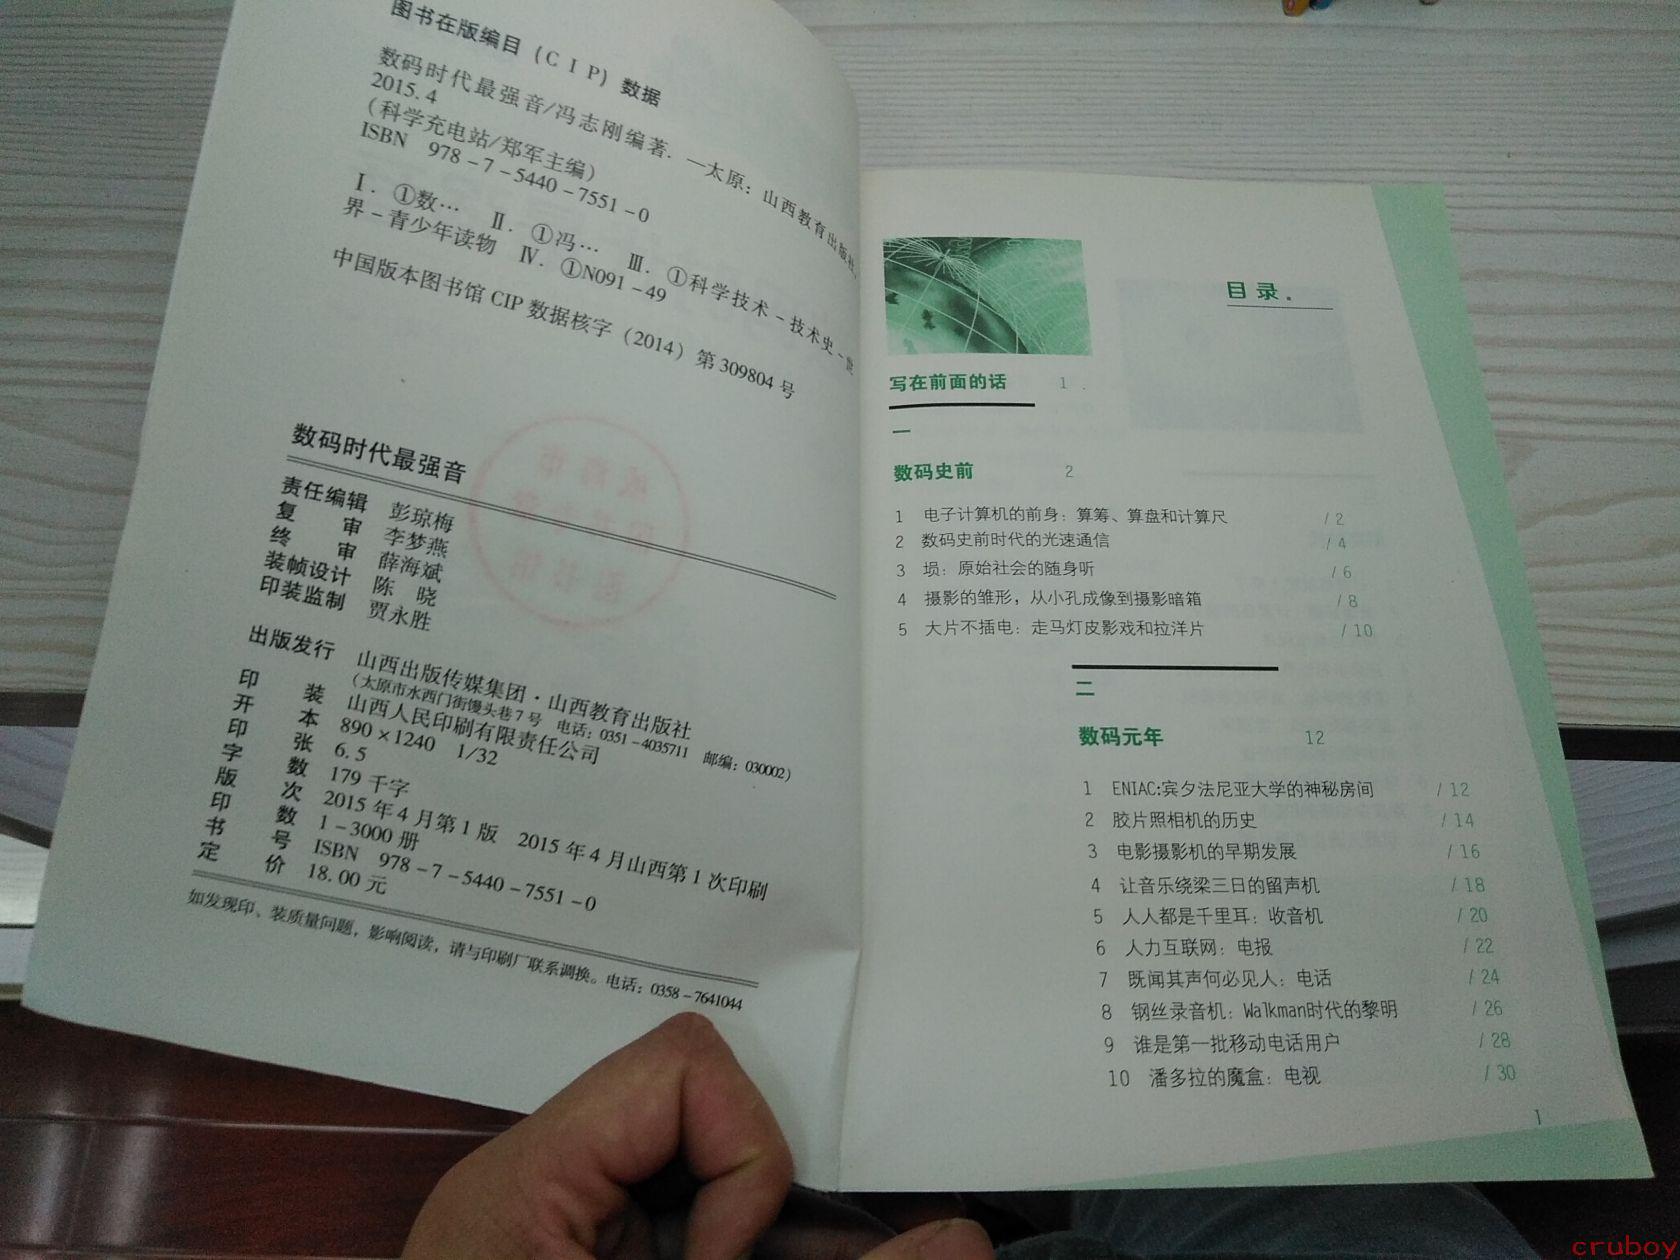 图书在版编目（CIP）数据
数码时代最强音/冯志刚编著. —太原：山西教育出版社，
2015.4
（科学充电站/郑军主编）
ISBN 978-7-5440-7551-0
Ⅰ. ①数… Ⅱ. ①冯… Ⅲ. ①科学技术-技术史-世
界-青少年读物 Ⅳ. ①N091-49
中国版本图书馆 CIP 数据核字（2014）第 309804 号
数码时代最强音
责任编辑 彭琼梅
复审 李梦燕
终审 薛海斌
装帧设计 陈晓
印装监制 贾永胜
出版发行 山西出版传媒集团·山西教育出版社
（太原市水西门街馒头巷7号 电话：0351-4035711 邮编：030002）
印装 山西人民印刷有限责任公司
开本 890×1240 1/32
印张 6.5
字数 179 千字
版次 2015 年 4 月第 1 版 2015 年 4 月山西第 1 次印刷
印数 1-3000 册
书号 ISBN 978-7-5440-7551-0
定价 18.00 元
如发现印、装质量问题，影响阅读，请与印刷厂联系调换。电话：0358-7641044
目录.
写在前面的话 1
一
数码史前 2
1 电子计算机的前身：算筹、算盘和计算尺 / 2
2 数码史前时代的光速通信 / 4
3 埙：原始社会的随身听 / 6
4 摄影的雏形，从小孔成像到摄影暗箱 / 8
5 大片不插电：走马灯皮影戏和拉洋片 / 10
二
数码元年 12
1 ENIAC:宾夕法尼亚大学的神秘房间 / 12
2 胶片照相机的历史 / 14
3 电影摄影机的早期发展 / 16
4 让音乐绕梁三日的留声机 / 18
5 人人都是千里耳：收音机 / 20
6 人力互联网：电报 / 22
7 既闻其声何必见人：电话 / 24
8 钢丝录音机：Walkman时代的黎明 / 26
9 谁是第一批移动电话用户 / 28
10 潘多拉的魔盒：电视 / 30
I
cruboy